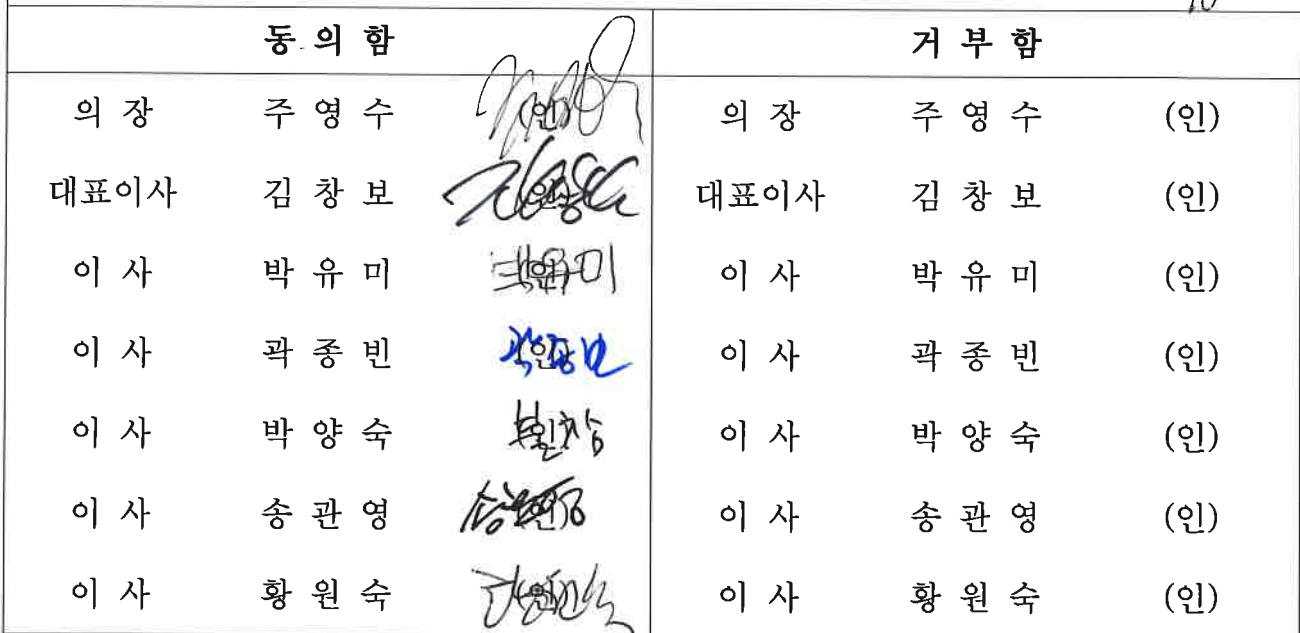 동의함 거부함
의 장 주 영 수 (인) 의 장 주 영 수 (인)
대표이사 김 창 보 (인) 대표이사 김 창 보 (인)
이 사 박 유 미 (인) 이 사 박 유 미 (인)
이 사 곽 종 빈 (인) 이 사 곽 종 빈 (인)
이 사 박 양 숙 불참 이 사 박 양 숙 (인)
이 사 송 관 영 (인) 이 사 송 관 영 (인)
이 사 황 원 숙 (인) 이 사 황 원 숙 (인)